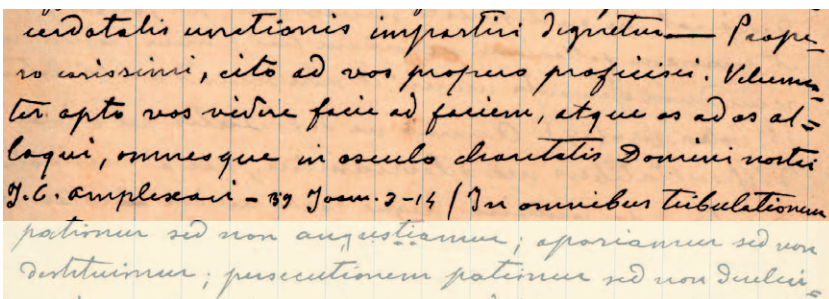 cerdotalis unctionis impartiri dignetur — Prope-
ro carissimi, cito ad vos propero proficisci. Vehemen-
ter opto vos videre facie ad faciem, atque os ad os al=
loqui, omnesque in osculo charitatis Domini nostri
J. C. amplexari - Joan. 3-14 / In omnibus tribulationem
patimur sed non angustiamur; aporiamur sed non
destituimur; persecutionem patimur sed non derelin=